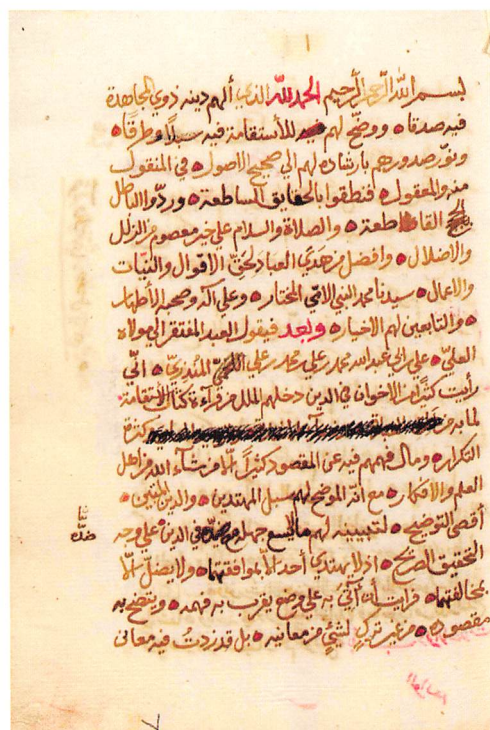 بسم الله الرحمن الرحيم الحمد لله الذي ألهم دينه ذوي المجاهدة
فيه صدقا ووضح لهم فيه للأستقامة فيه سبلاً وطرقًا
ونوّر صدورهم بارشاده لهم الى صحيح الاصول في المنقول
منه والمعقول فنطقوا بالحقايق الساطعة وردّوا الباطل
القاطعة والصلاة والسلام على خير معصوم من الزلل
والاضلال وافضل من هدى العباد لحقّ الاقوال والنيّات
والاعمال سيدنا محمد النبي الأمّي المختار وعلى آله وصحبه الأطهار
والتابعين لهم الاخيار وبعد فيقول العبد المفتقر الى مولاه
العليّ علي بن ابي عبدالله محمد بن علي بن محمد بن علي المنذريّ انّي
رأيت كثيرًا من الاخوان في الدين دخلهم الملل من قراءة كتاب الأستقامة
لما به من كثرة
التكرار ومال فهمهم فيه عن المقصود كثيراً الّا من شاء الله من اهل
العلم والافكار مع انّه الموضح لهم سبل المهتدين والدين المتين
أقصى التوضيح لتبيينه لهم ما لا يسع جهله في الدين على وجه
ضدّه
التحقيق الصريح اذ لا يهتدي أحد الّا بموافقتها ولا يضلّ الّا
بمخالفتها فرايت أن آتي به على وضع يقرب به فهمه ويتضح به
مقصوده من غير ترك لشئ من معانيه بل قد زدتُ فيه معاني